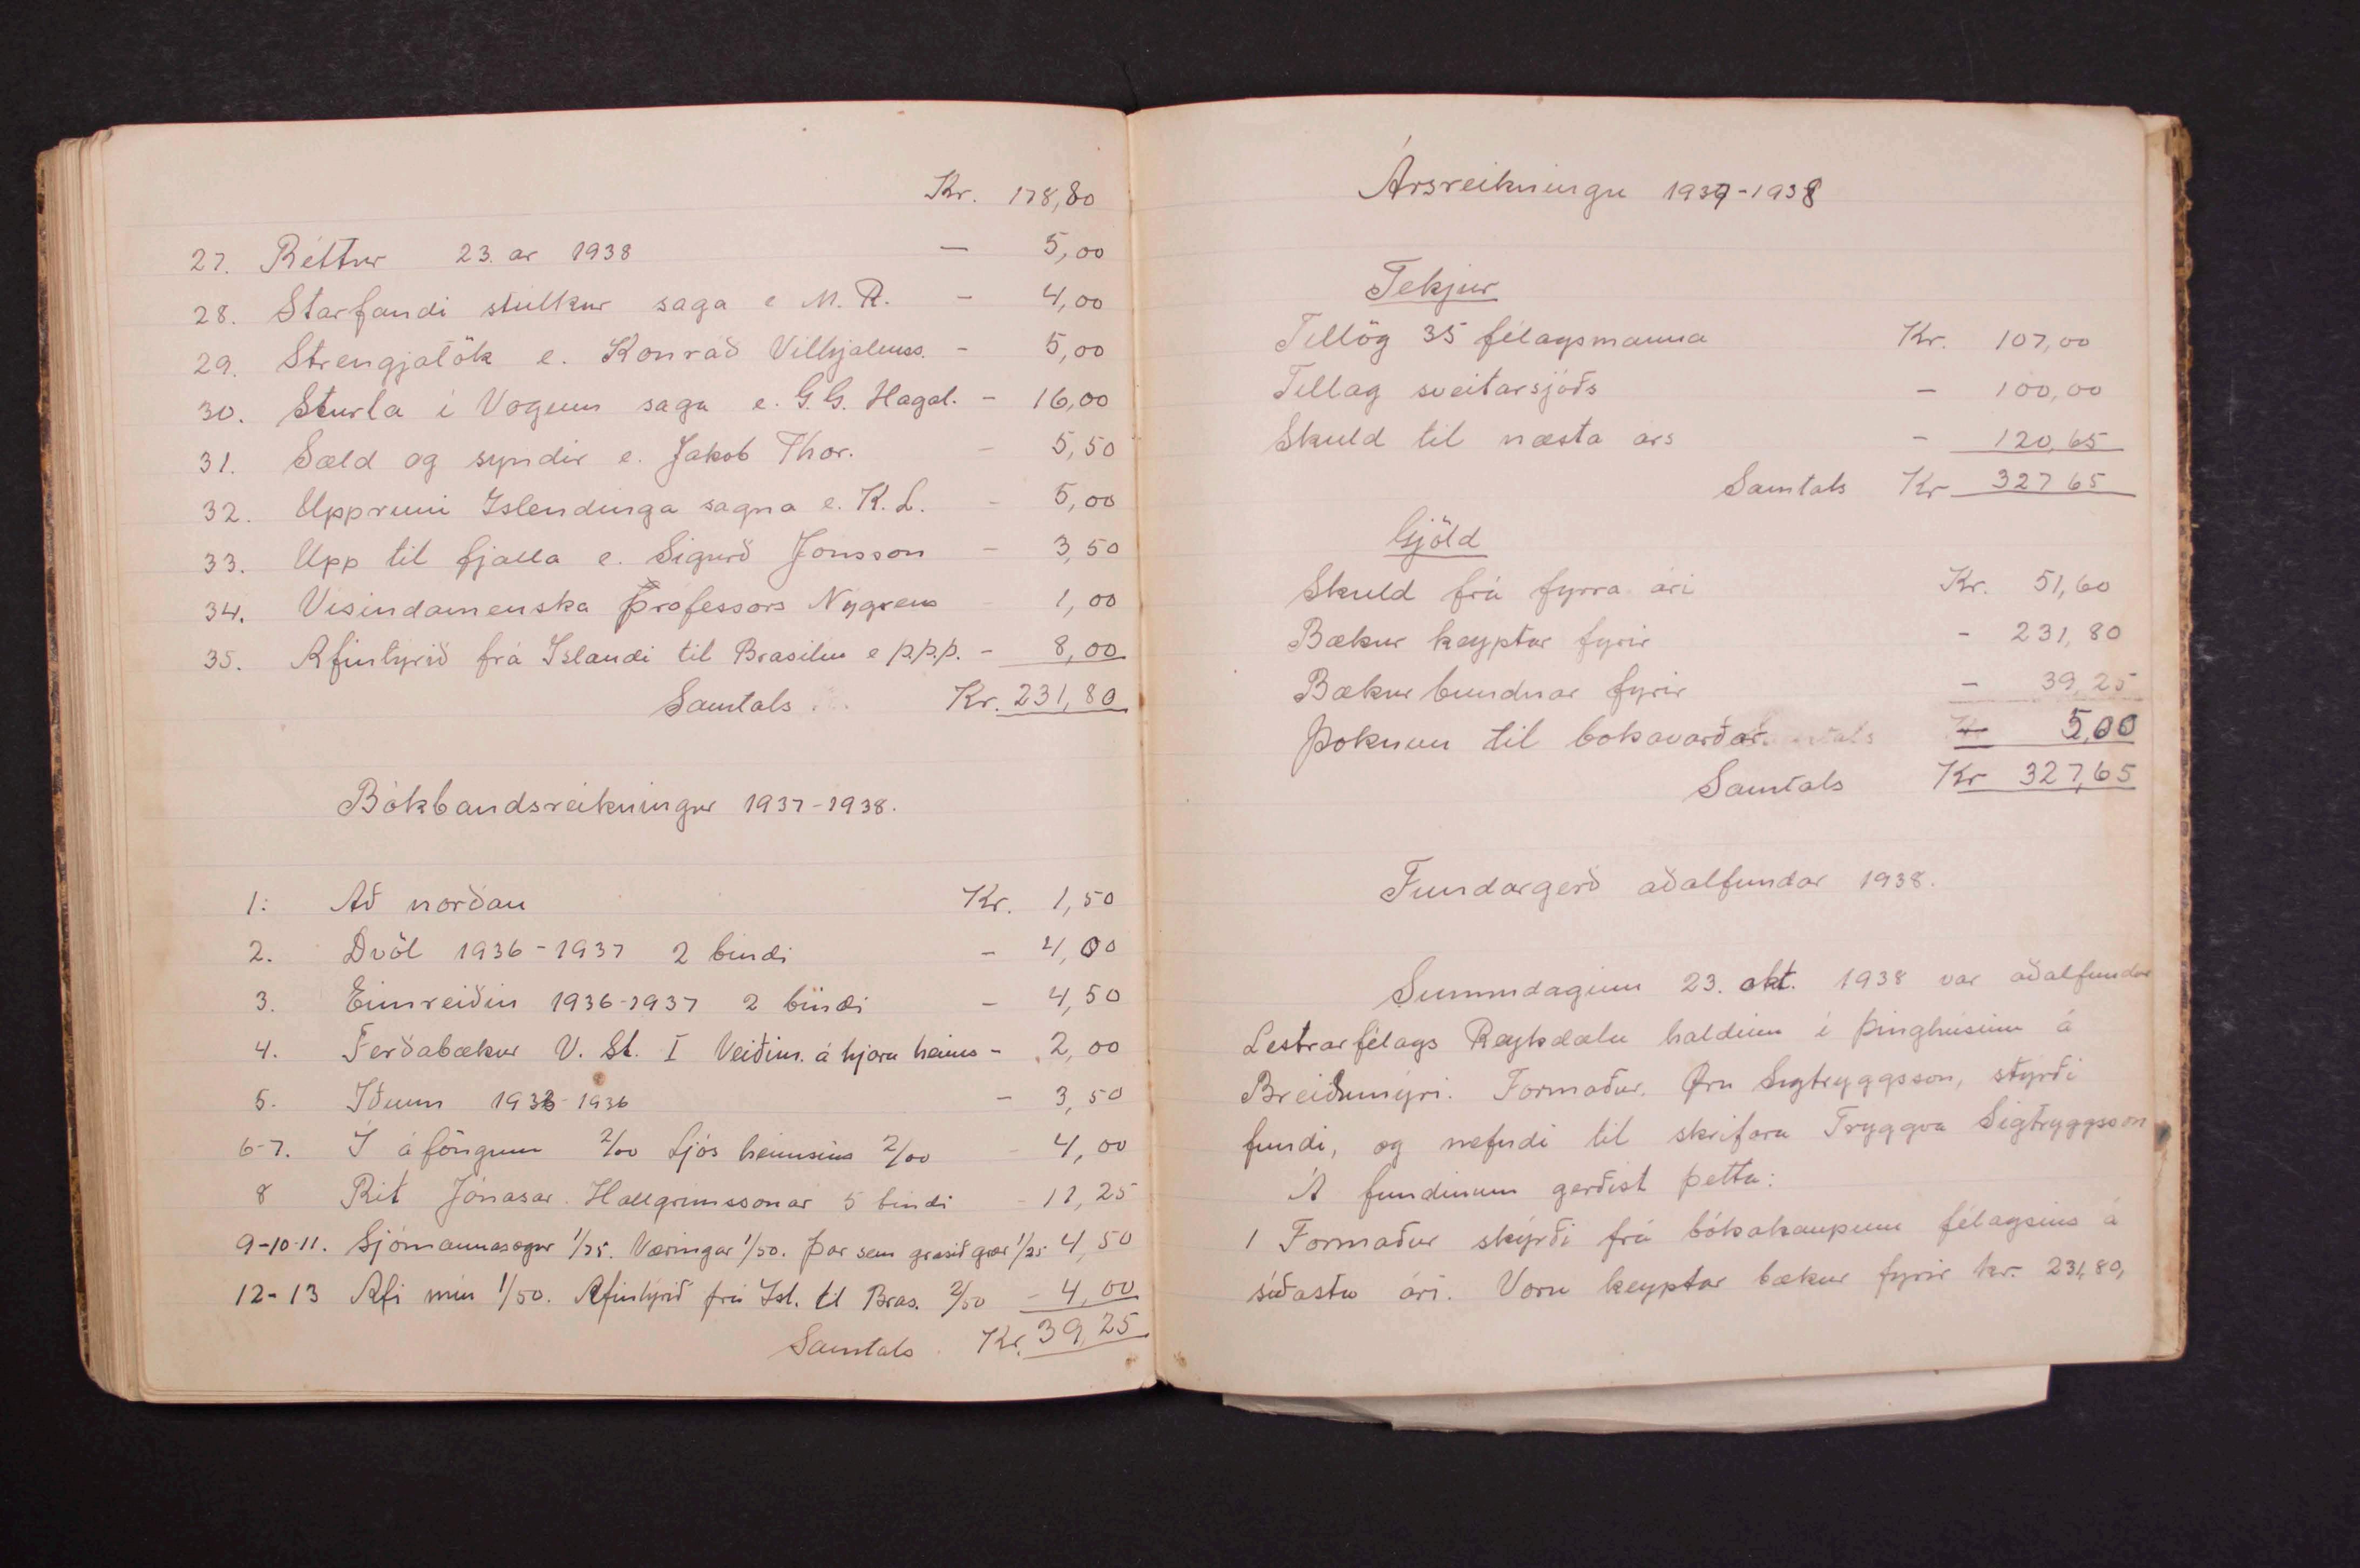 Kr. 178,80
27. Réttur 23. ár 1938 — 5,00
28. Starfandi stúlkur saga e M. R. - 4,00
29. Strengjatök e. Konrað Vilhjalmss. - 5,00
30. Sturla í Vogum saga e. G. G. Hagal. - 16,00
31. Sæld og syndir e. Jakob Thor. - 5,50
32. Uppruni Islendinga sagna e. K. L. - 5,00
33. Upp til fjalla e. Sigurð Jónsson - 3,50
34. Visindamenska professors Nygrens - 1,00
35. Æfintyrið frá Islandi til Brasiliu e þ.þ.þ. - 8,00
Samtals Kr. 231,80
Bókbandsreikningur 1937-1938.
1: Að norðan Kr. 1,50
2. Dvöl 1936-1937 2 bindi - 4,00
3. Eimreiðin 1936-1937 2 bindi - 4,50
4. Ferðabækur V. St. I Veiðim. á hjara heims - 2,00
5. Iðunn 1936 - 3,50
6-7. Í áföngum 2/00 Ljós heimsins 2/00 - 4,00
8 Rit Jónasar Hallgrímssonar 5 bindi - 11,25
9-10-11. Sjómannasögur 1/75. Væringar 1/50. Þar sem grasið grær 1/25 4,50
12-13 Afi minn 1/50. Æfintýrið frá Isl. til Bras. 2/50 - 4,00
Samtals Kr. 39,25
Ársreikningur 1937-1938
Tekjur
Tillög 35 félagsmanna Kr. 107,00
Tillag sveitarsjóðs - 100,00
Skuld til næsta árs - 120,65
Samtals Kr 327 65
Gjöld
Skuld frá fyrra ári Kr. 51,60
Bækur keyptar fyrir - 231,80
Bækur bundnar fyrir - 39,25
Þoknun til bókavarðar 5,00
Samtals Kr 327,65
Fundargerð aðalfundar 1938.
Sunnudaginn 23. okt. 1938 var aðalfundur
Lestrarfélags Reykdæla haldinn í þinghúsinu á
Breiðumýri. Formaður, Örn Sigtryggsson, stýrði
fundi, og nefndi til skrifara Tryggva Sigtryggsson
Á fundinum gerðist þetta:
1 Formaður skýrði frá bókakaupum félagsins á
síðasta ári. Voru keyptar bækur fyrir kr. 231,80,